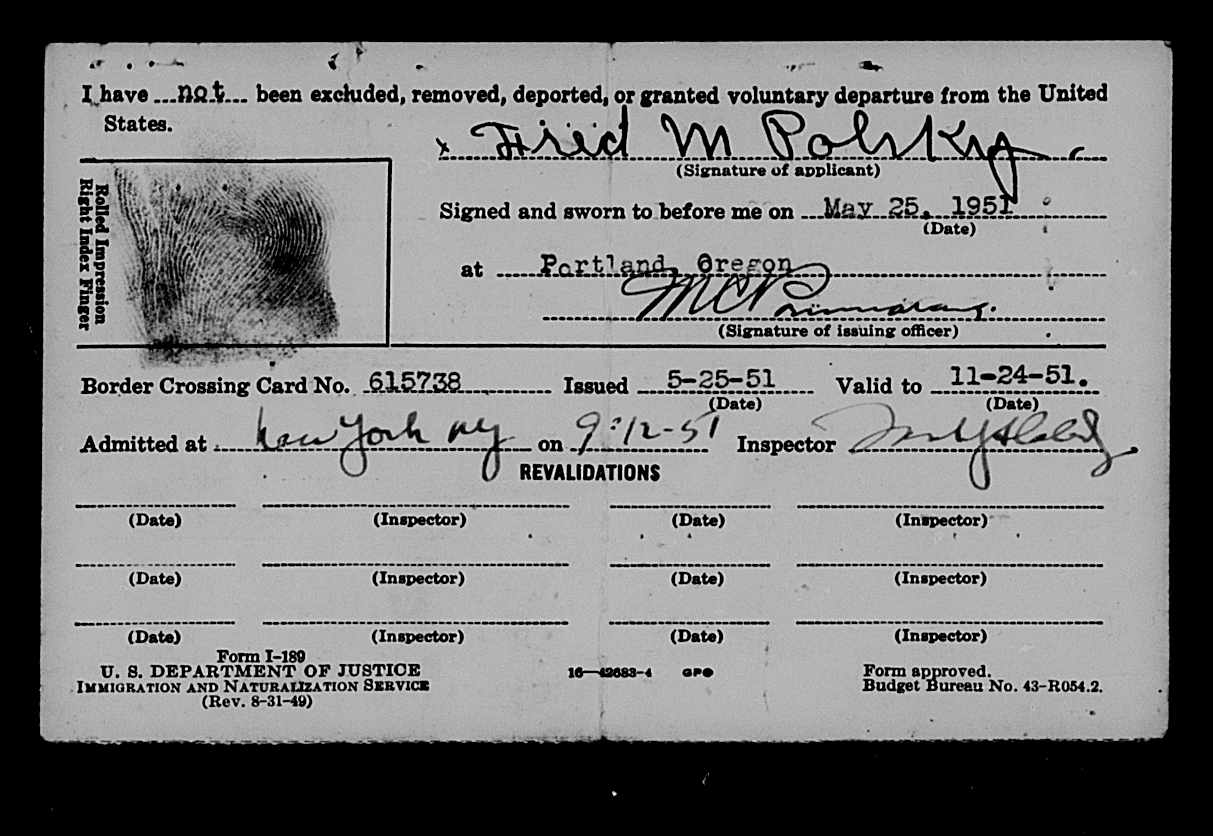 I have not been excluded, removed, deported, or granted voluntary departure from the United
States.
x Fried M Polsky
(Signature of applicant)
Rolled Impression
Right Index Finger
Signed and sworn to before me on May 25, 1951
(Date)
at Portland, Oregon
(Signature of issuing officer)
Border Crossing Card No. 615738 Issued 5-25-51 Valid to 11-24-51.
(Date) (Date)
Admitted at New York NY on 9-12-51 Inspector
REVALIDATIONS
(Date) (Inspector) (Date) (Inspector)
(Date) (Inspector) (Date) (Inspector)
(Date) (Inspector) (Date) (Inspector)
Form I-189
U. S. DEPARTMENT OF JUSTICE 16—42683-4 GPO Form approved.
IMMIGRATION AND NATURALIZATION SERVICE Budget Bureau No. 43-R054.2.
(Rev. 8-31-49)